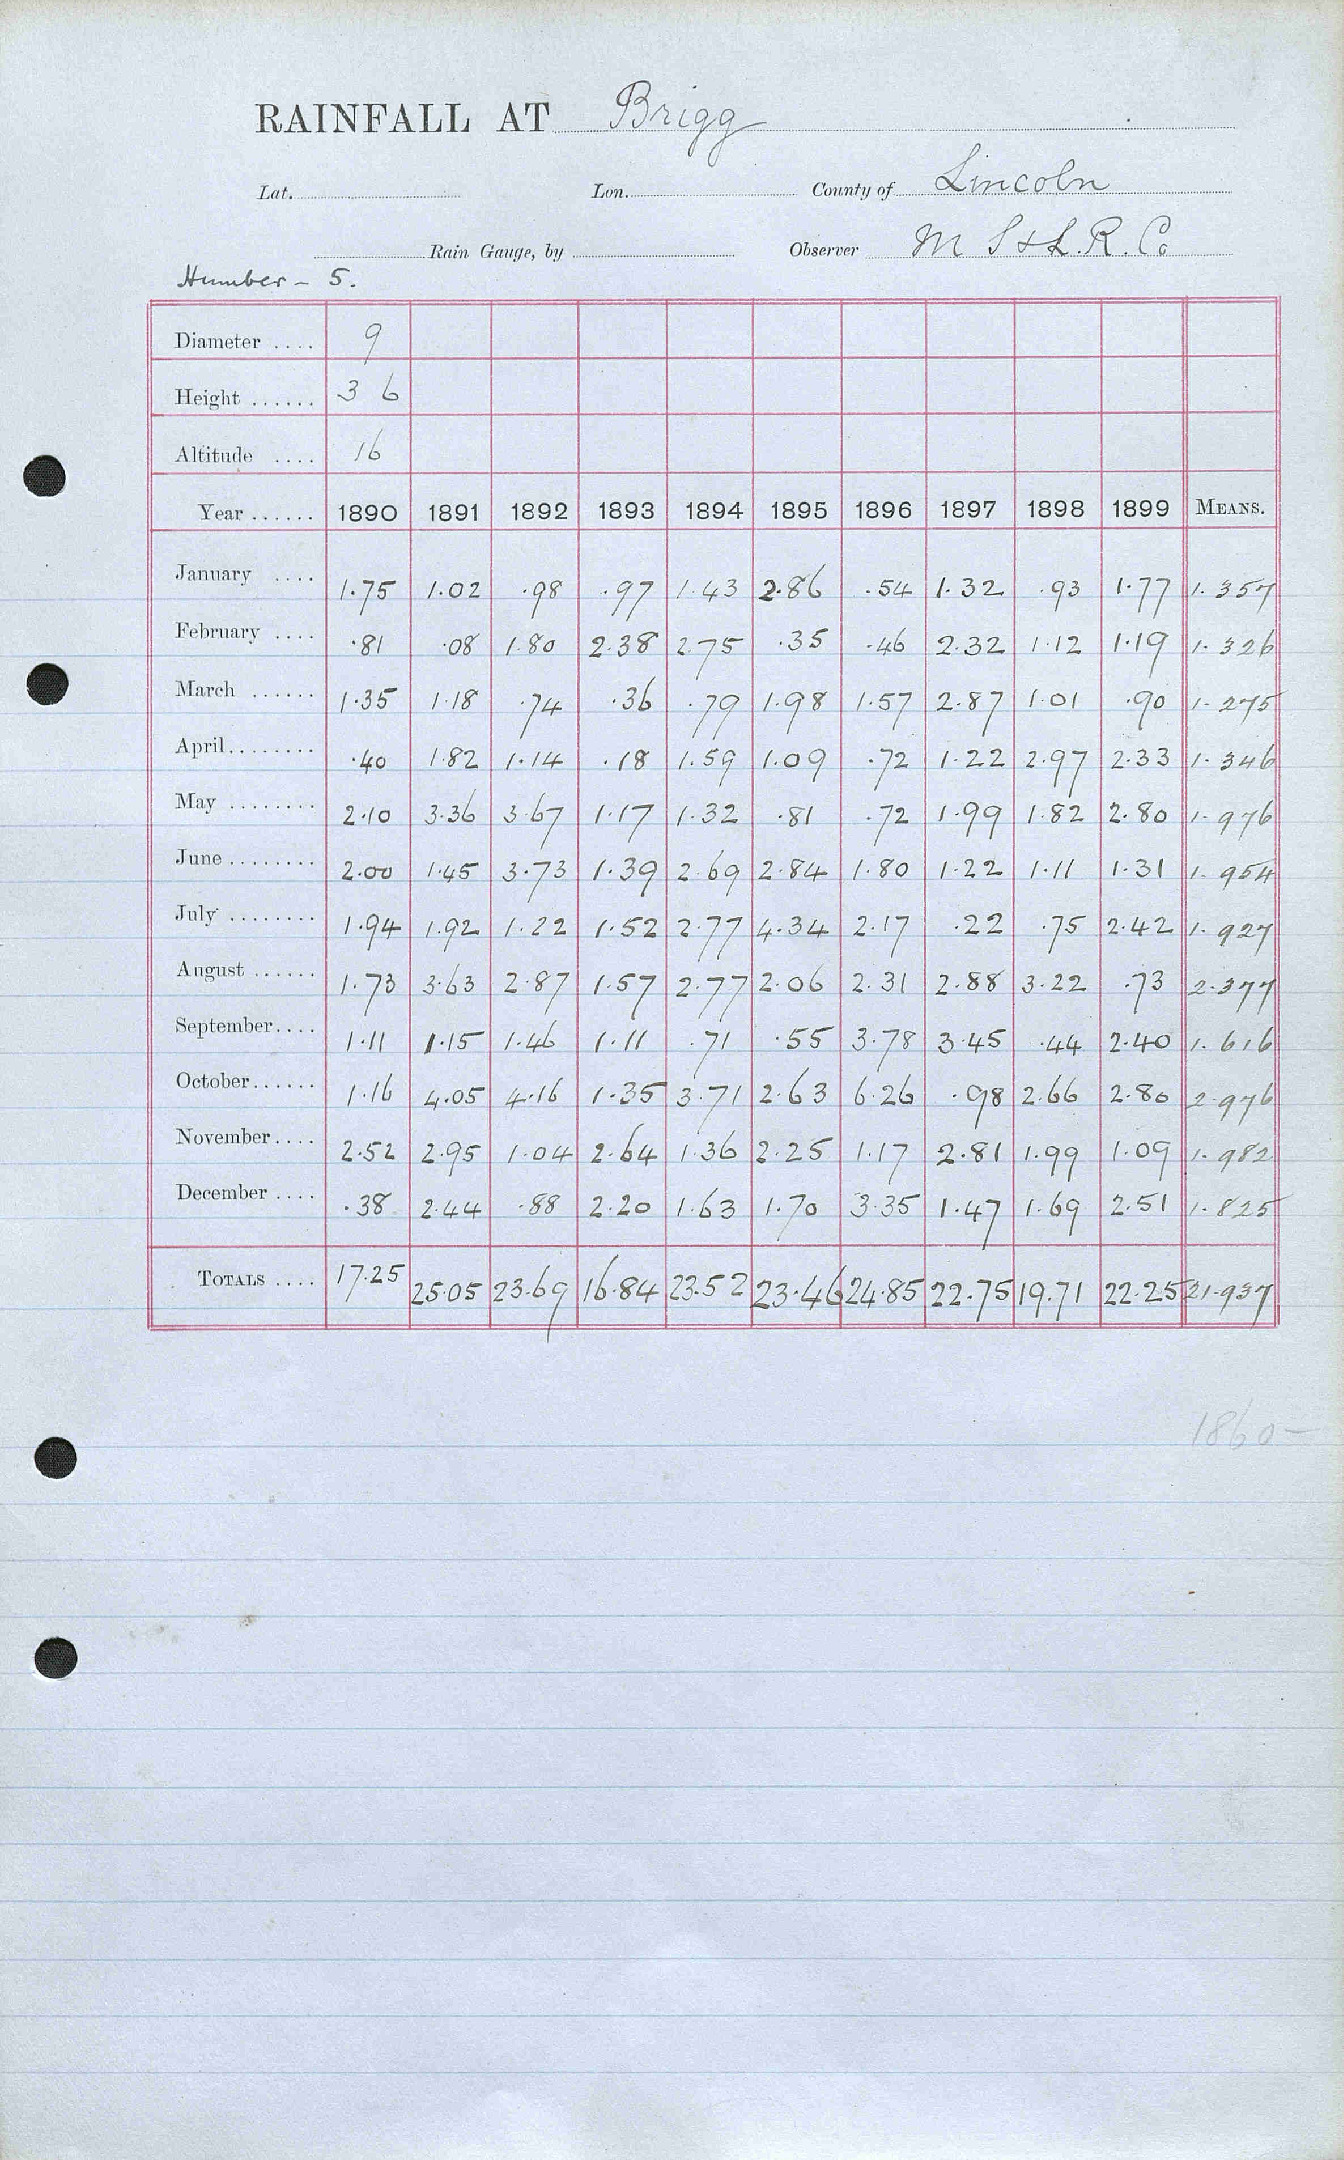 RAINFALL AT Brigg
Lat. Lon. County of Lincoln
Rain Gauge, by Observer M S & L. R. Co
Humber - 5.
Diameter .... 9
Height ...... 3 6
Altitude .... 16
Year ...... 1890 1891 1892 1893 1894 1895 1896 1897 1898 1899 MEANS.
January .... 1.75 1.02 .98 .97 1.43 2.86 .54 1.32 .93 1.77 1.357
February .... .81 .08 1.80 2.38 2.75 .35 .46 2.32 1.12 1.19 1.326
March ...... 1.35 1.18 .74 .36 .79 1.98 1.57 2.87 1.01 .90 1.275
April........ .40 1.82 1.14 .18 1.59 1.09 .72 1.22 2.97 2.33 1.346
May ........ 2.10 3.36 3.67 1.17 1.32 .81 .72 1.99 1.82 2.80 1.976
June ........ 2.00 1.45 3.73 1.39 2.69 2.84 1.80 1.22 1.11 1.31 1.954
July ........ 1.94 1.92 1.22 1.52 2.77 4.34 2.17 .22 .75 2.42 1.927
August ...... 1.73 3.63 2.87 1.57 2.77 2.06 2.31 2.88 3.22 .73 2.377
September.... 1.11 1.15 1.46 1.11 .71 .55 3.78 3.45 .44 2.40 1.616
October...... 1.16 4.05 4.16 1.35 3.71 2.63 6.26 .98 2.66 2.80 2.976
November.... 2.52 2.95 1.04 2.64 1.36 2.25 1.17 2.81 1.99 1.09 1.982
December .... .38 2.44 .88 2.20 1.63 1.70 3.35 1.47 1.69 2.51 1.825
TOTALS .... 17.25 25.05 23.69 16.84 23.52 23.46 24.85 22.75 19.71 22.25 21.937
1860-